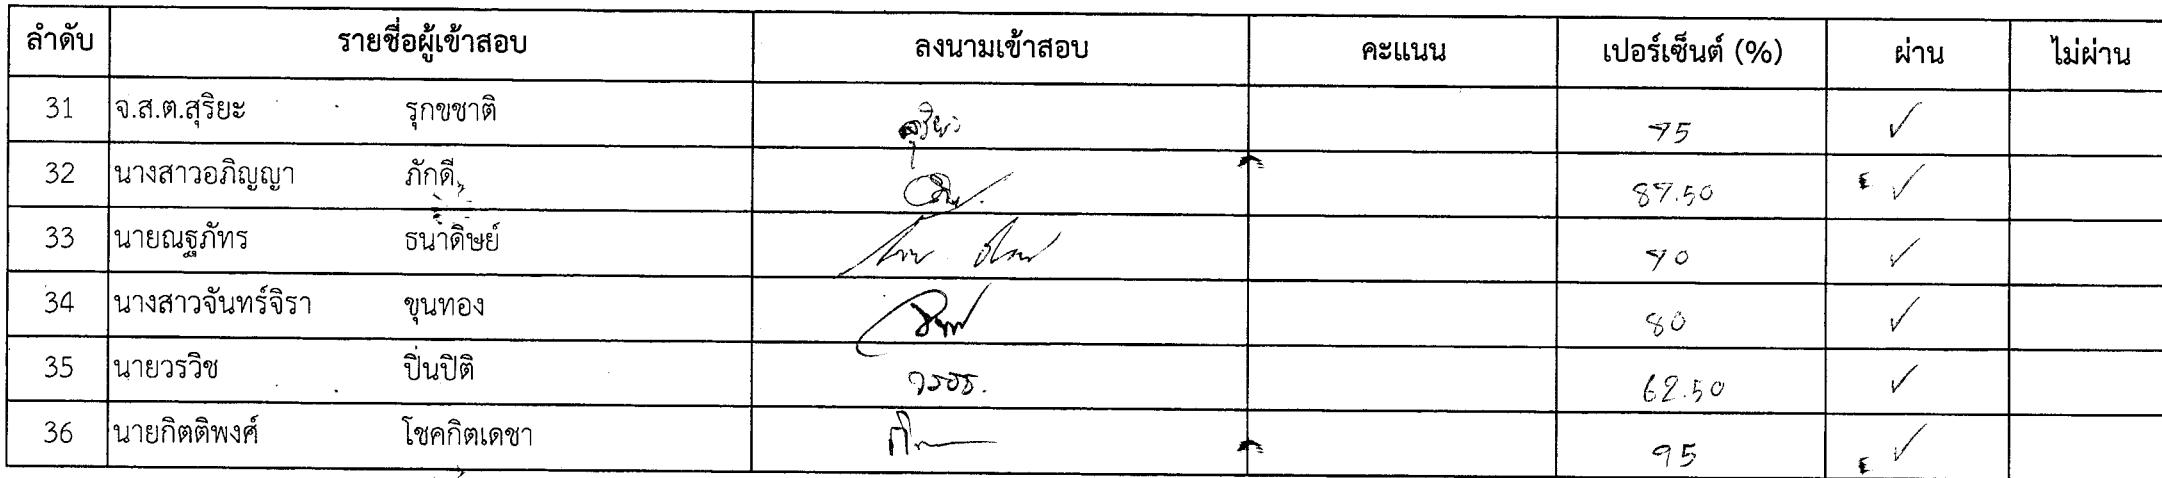 ลำดับ รายชื่อผู้เข้าสอบ ลงนามเข้าสอบ คะแนน เปอร์เซ็นต์ (%) ผ่าน ไม่ผ่าน
31 จ.ส.ต.สุริยะ รุกขชาติ สุริยะ 75 ✓
32 นางสาวอภิญญา ภักดี 87.50 ✓
33 นายณฐภัทร ธนาดิษย์ 70 ✓
34 นางสาวจันทร์จิรา ขุนทอง 80 ✓
35 นายวรวิช ปิ่นปิติ 62.50 ✓
36 นายกิตติพงศ์ โชคกิตเดชา 95 ✓